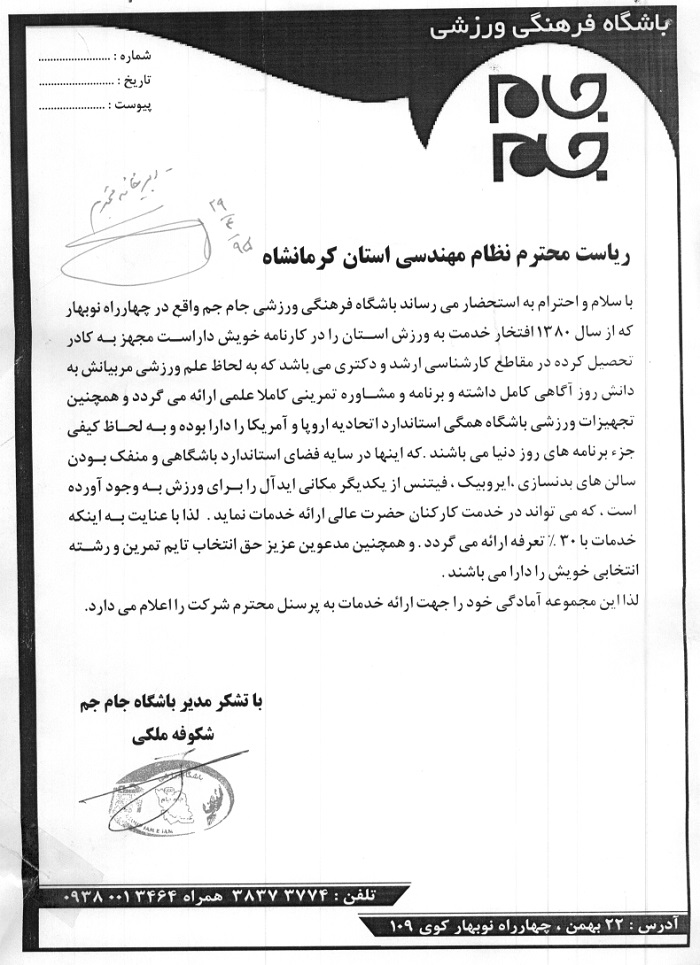 باشگاه فرهنگی ورزشی
شماره : ........................
تاریخ : ........................
پیوست : ......................
جام جم
دبیرخانه
۲۹/۴/۹۵
ریاست محترم نظام مهندسی استان کرمانشاه
با سلام و احترام به استحضار می رساند باشگاه فرهنگی ورزشی جام جم واقع در چهارراه نوبهار
که از سال ۱۳۸۰ افتخار خدمت به ورزش استان را در کارنامه خویش داراست مجهز به کادر
تحصیل کرده در مقاطع کارشناسی ارشد و دکتری می باشد که به لحاظ علم ورزشی مربیانش به
دانش روز آگاهی کامل داشته و برنامه و مشاوره تمرینی کاملا علمی ارائه می گردد و همچنین
تجهیزات ورزشی باشگاه همگی استاندارد اتحادیه اروپا و آمریکا را دارا بوده و به لحاظ کیفی
جزء برنامه های روز دنیا می باشند .که اینها در سایه فضای استاندارد باشگاهی و منفک بودن
سالن های بدنسازی ،ایروبیک ، فیتنس از یکدیگر مکانی ایدآل را برای ورزش به وجود آورده
است ، که می تواند در خدمت کارکنان حضرت عالی ارائه خدمات نماید . لذا با عنایت به اینکه
خدمات با ۳۰ ٪ تعرفه ارائه می گردد . و همچنین مدعوین عزیز حق انتخاب تایم تمرین و رشته
انتخابی خویش را دارا می باشند .
لذا این مجموعه آمادگی خود را جهت ارائه خدمات به پرسنل محترم شرکت را اعلام می دارد.
با تشکر مدیر باشگاه جام جم
شکوفه ملکی
باشگاه ورزشی
JAM E JAM
تلفن : ۳۸۳۷ ۳۷۷۴ همراه ۰۹۳۸ ۰۰۱ ۳۴۶۴
آدرس : ۲۲ بهمن ، چهارراه نوبهار کوی ۱۰۹